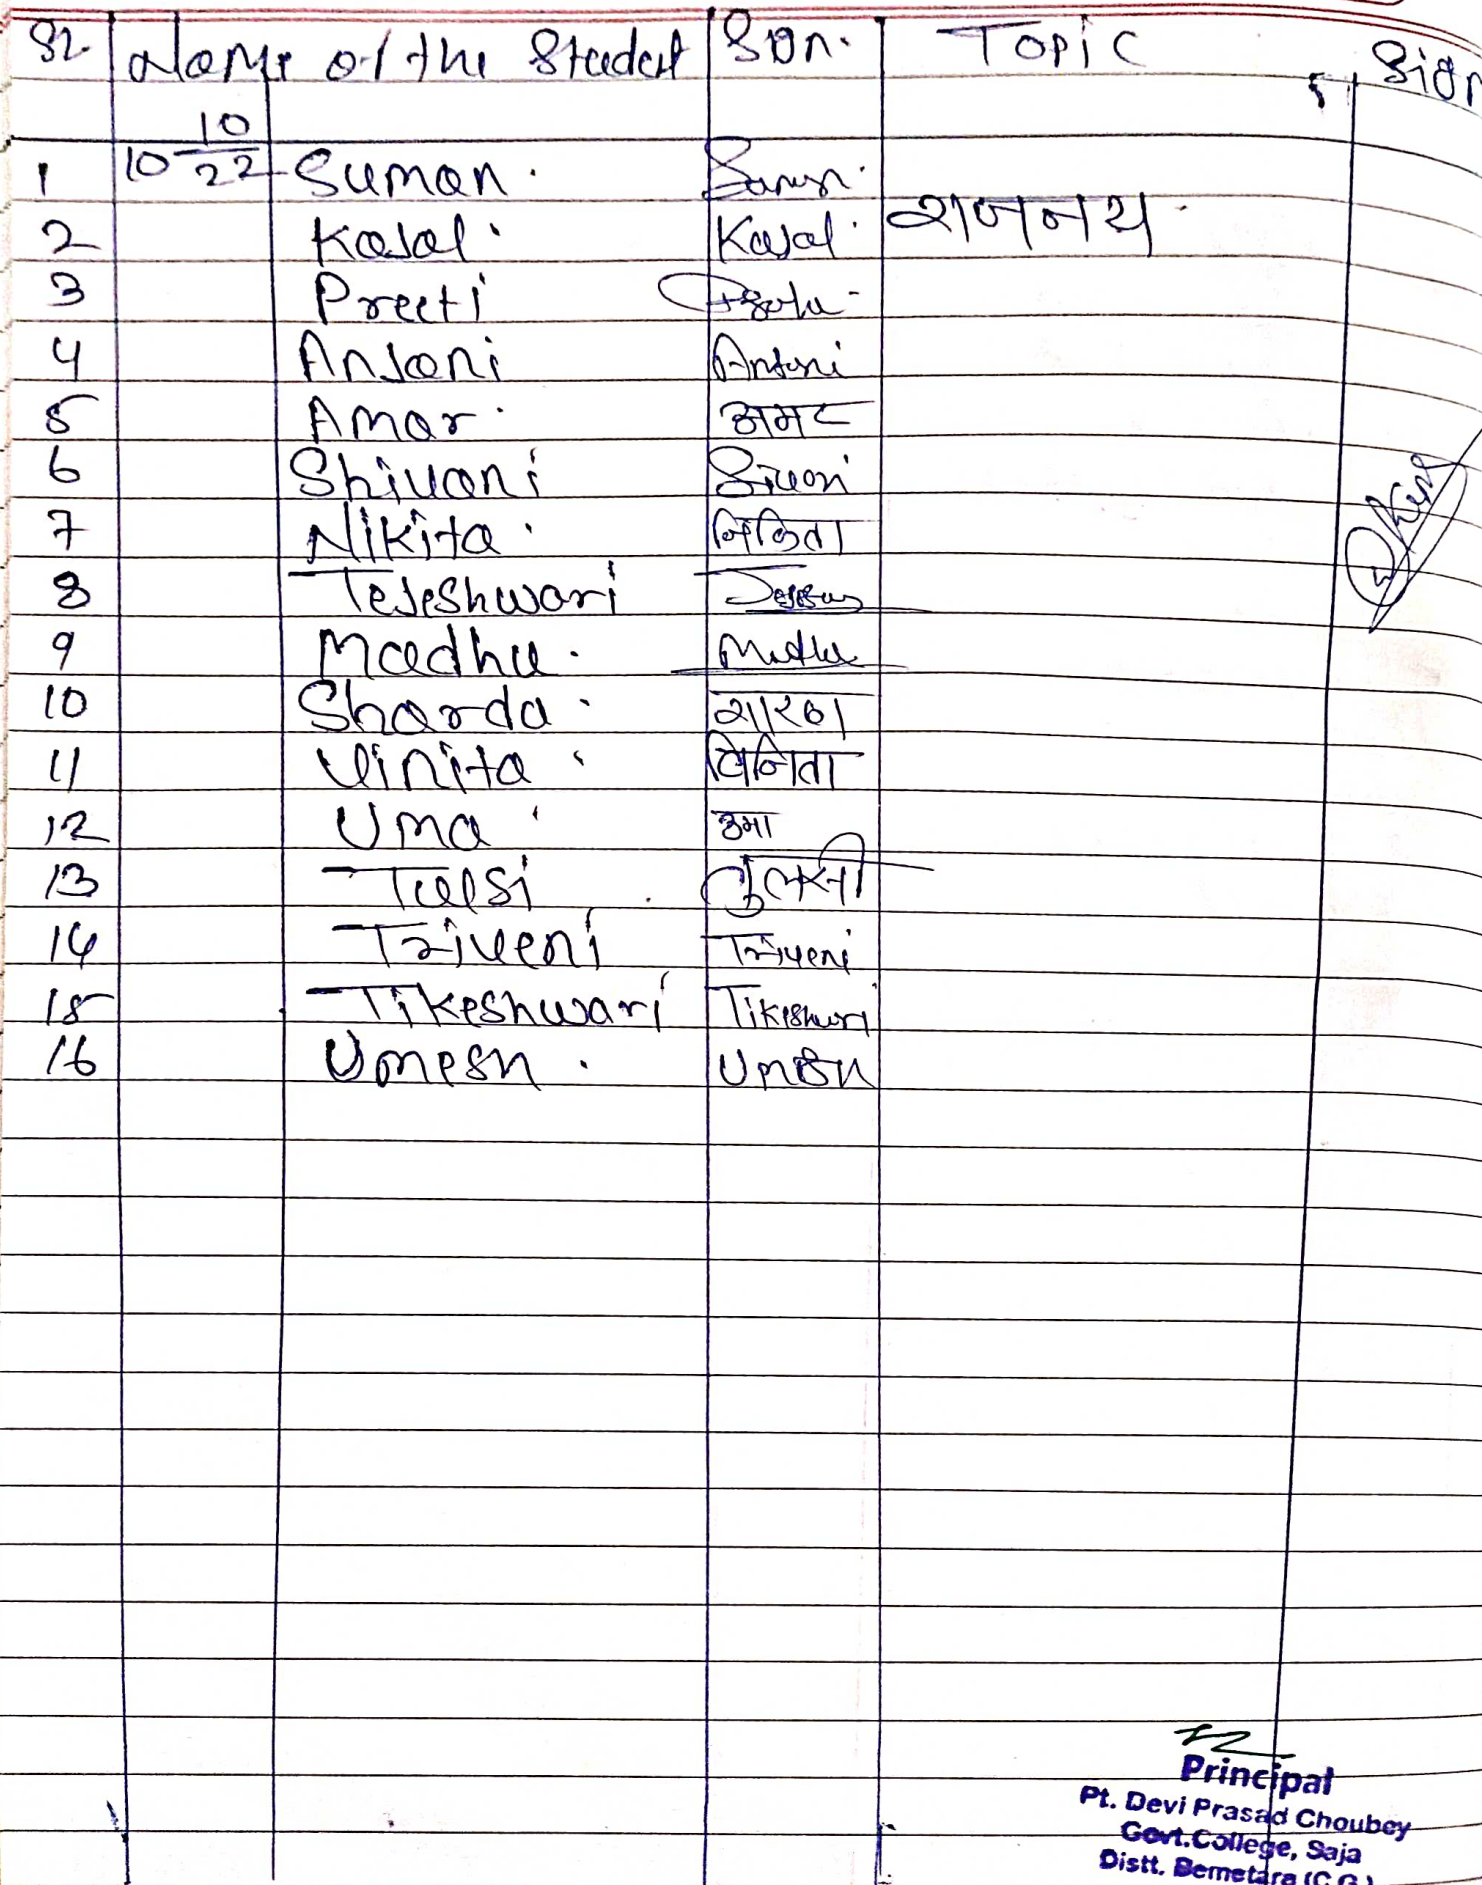 Sl. Name of the Student Sign. Topic Sign
10 10/22
1 Suman. Suman.
2 Kajal. Kajal. राजनय
3 Preeti
4 Anjani Anjani
5 Amar. अमर
6 Shivani Shivani
7 Nikita. निकिता
8 Tejeshwari
9 Madhu. Madhu
10 Sharda. शारदा
11 Vinita. विनिता
12 Uma उमा
13 Tulsi तुलसी
14 Triveni Triveni
15 Tikeshwari Tikeshwari
16 Umesh. Umesh
Principal
Pt. Devi Prasad Choubey
Govt.College, Saja
Distt. Bemetara (C.G.)